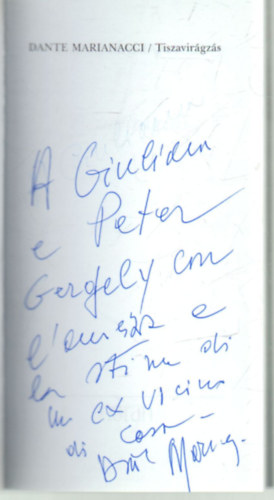 DANTE MARIANACCI / Tiszavirágzás
A Giuliana
e Peter
Gergely con
l'amicizia e
la stima di
un ex vicino
di casa –